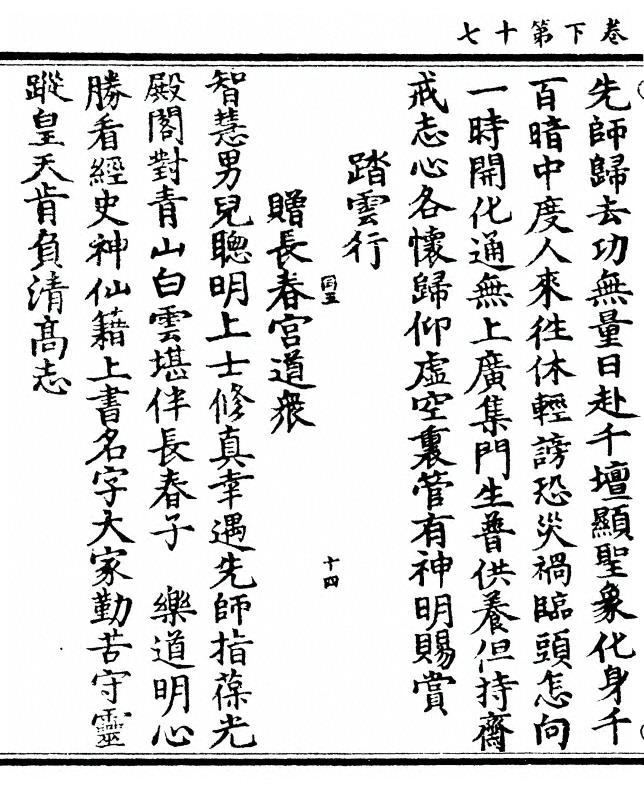 卷下第十七
先師歸去功無量日赴千壇顯聖象化身千
百暗中度人來徃休輕謗恐災禍臨頭怎向
一時開化通無上廣集門生普供養但持齋
戒志心各懷歸仰虛空裏管有神明賜賞
踏雲行
同五
十四
贈長春宮道衆
智慧男兒聰明上士修真幸遇先師指葆光
殿閣對青山白雲堪伴長春子　樂道明心
勝看經史神仙籍上書名字大家勤苦守靈
蹤皇天肯負清髙志